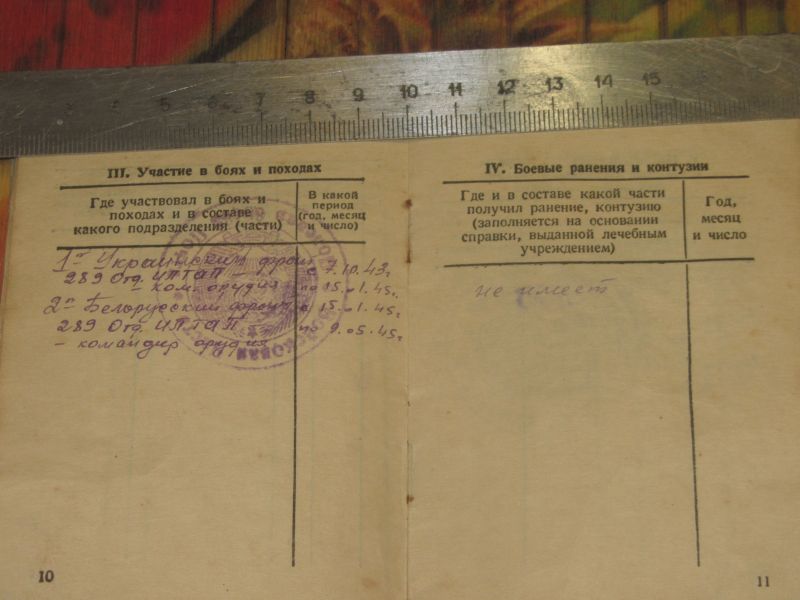 5 6 7 8 9 10 11 12 13 14 15
III. Участие в боях и походах
Где участвовал в боях и
походах и в составе
какого подразделения (части)
В какой
период
(год, месяц
и число)
1й Украинский фронт с 7.10.43г
289 Отд. ИПТАП –
– ком. орудия по 15.01.45г.
2й Белорусский фронт с 15.01.45г
289 Отд. ИПТАП по 9.05.45г
– командир орудия
10
IV. Боевые ранения и контузии
Где и в составе какой части
получил ранение, контузию
(заполняется на основании
справки, выданной лечебным
учреждением)
Год,
месяц
и число
не имеет
11